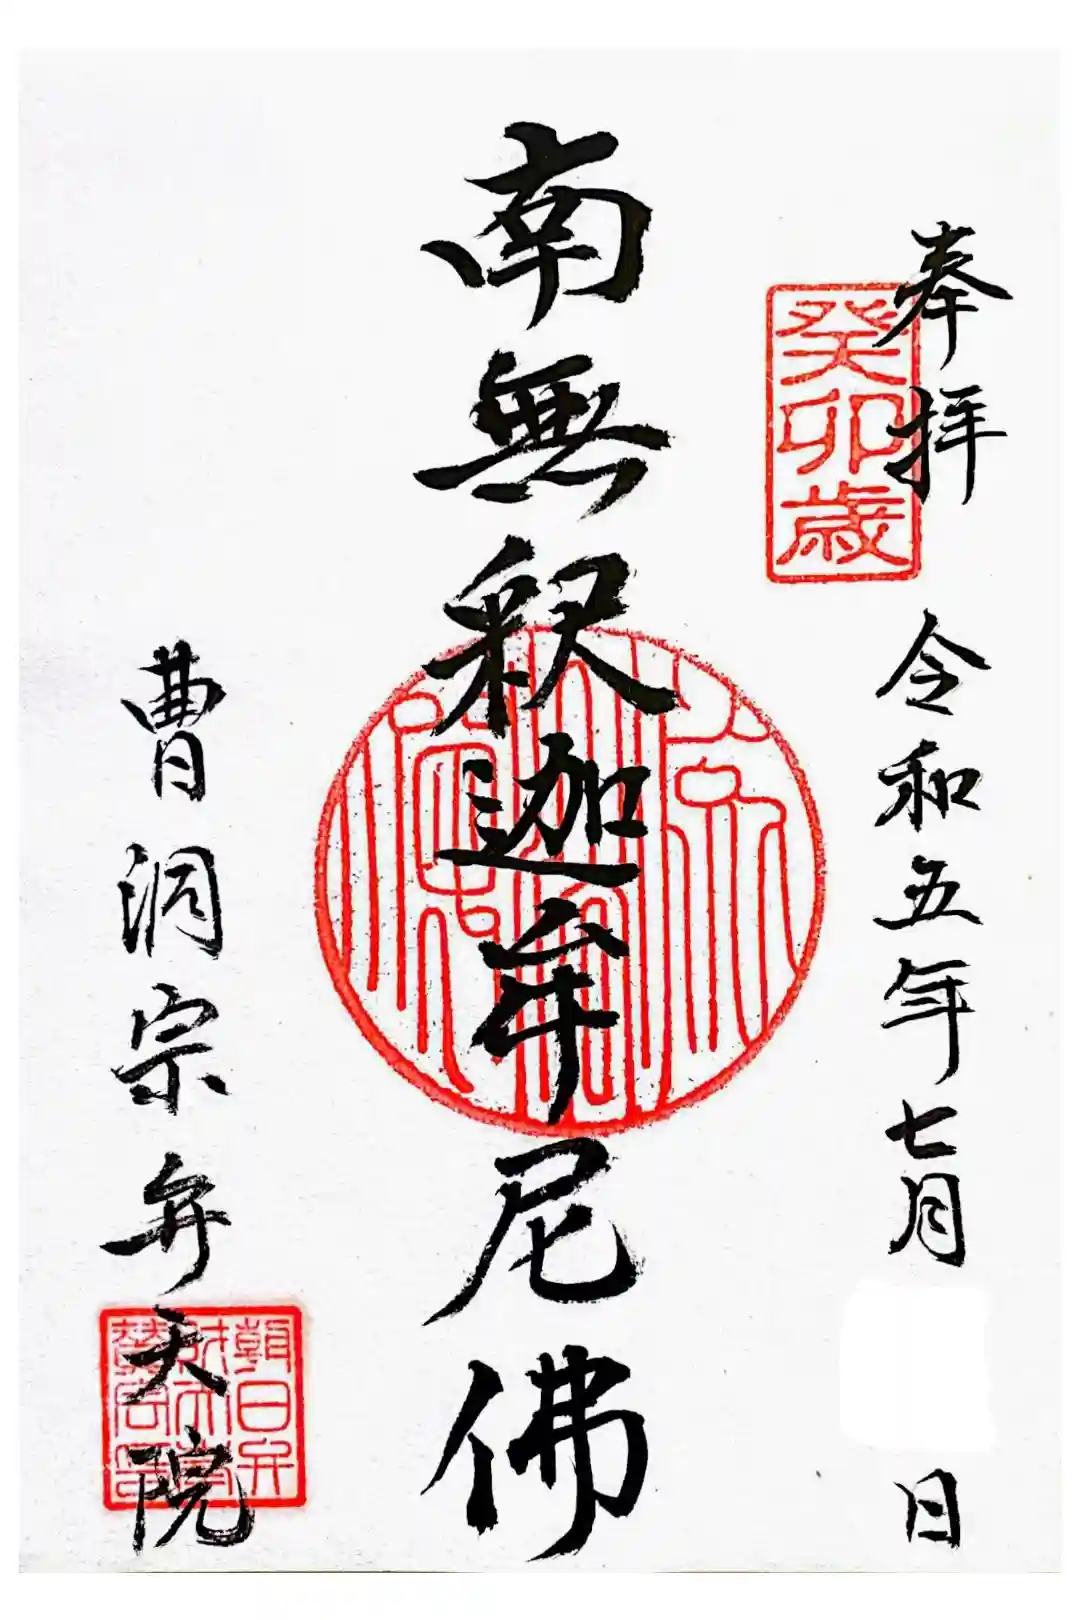 奉拝
癸卯歳
令和五年七月 日
南無釈迦牟尼佛
曹洞宗弁天院
朝日弁